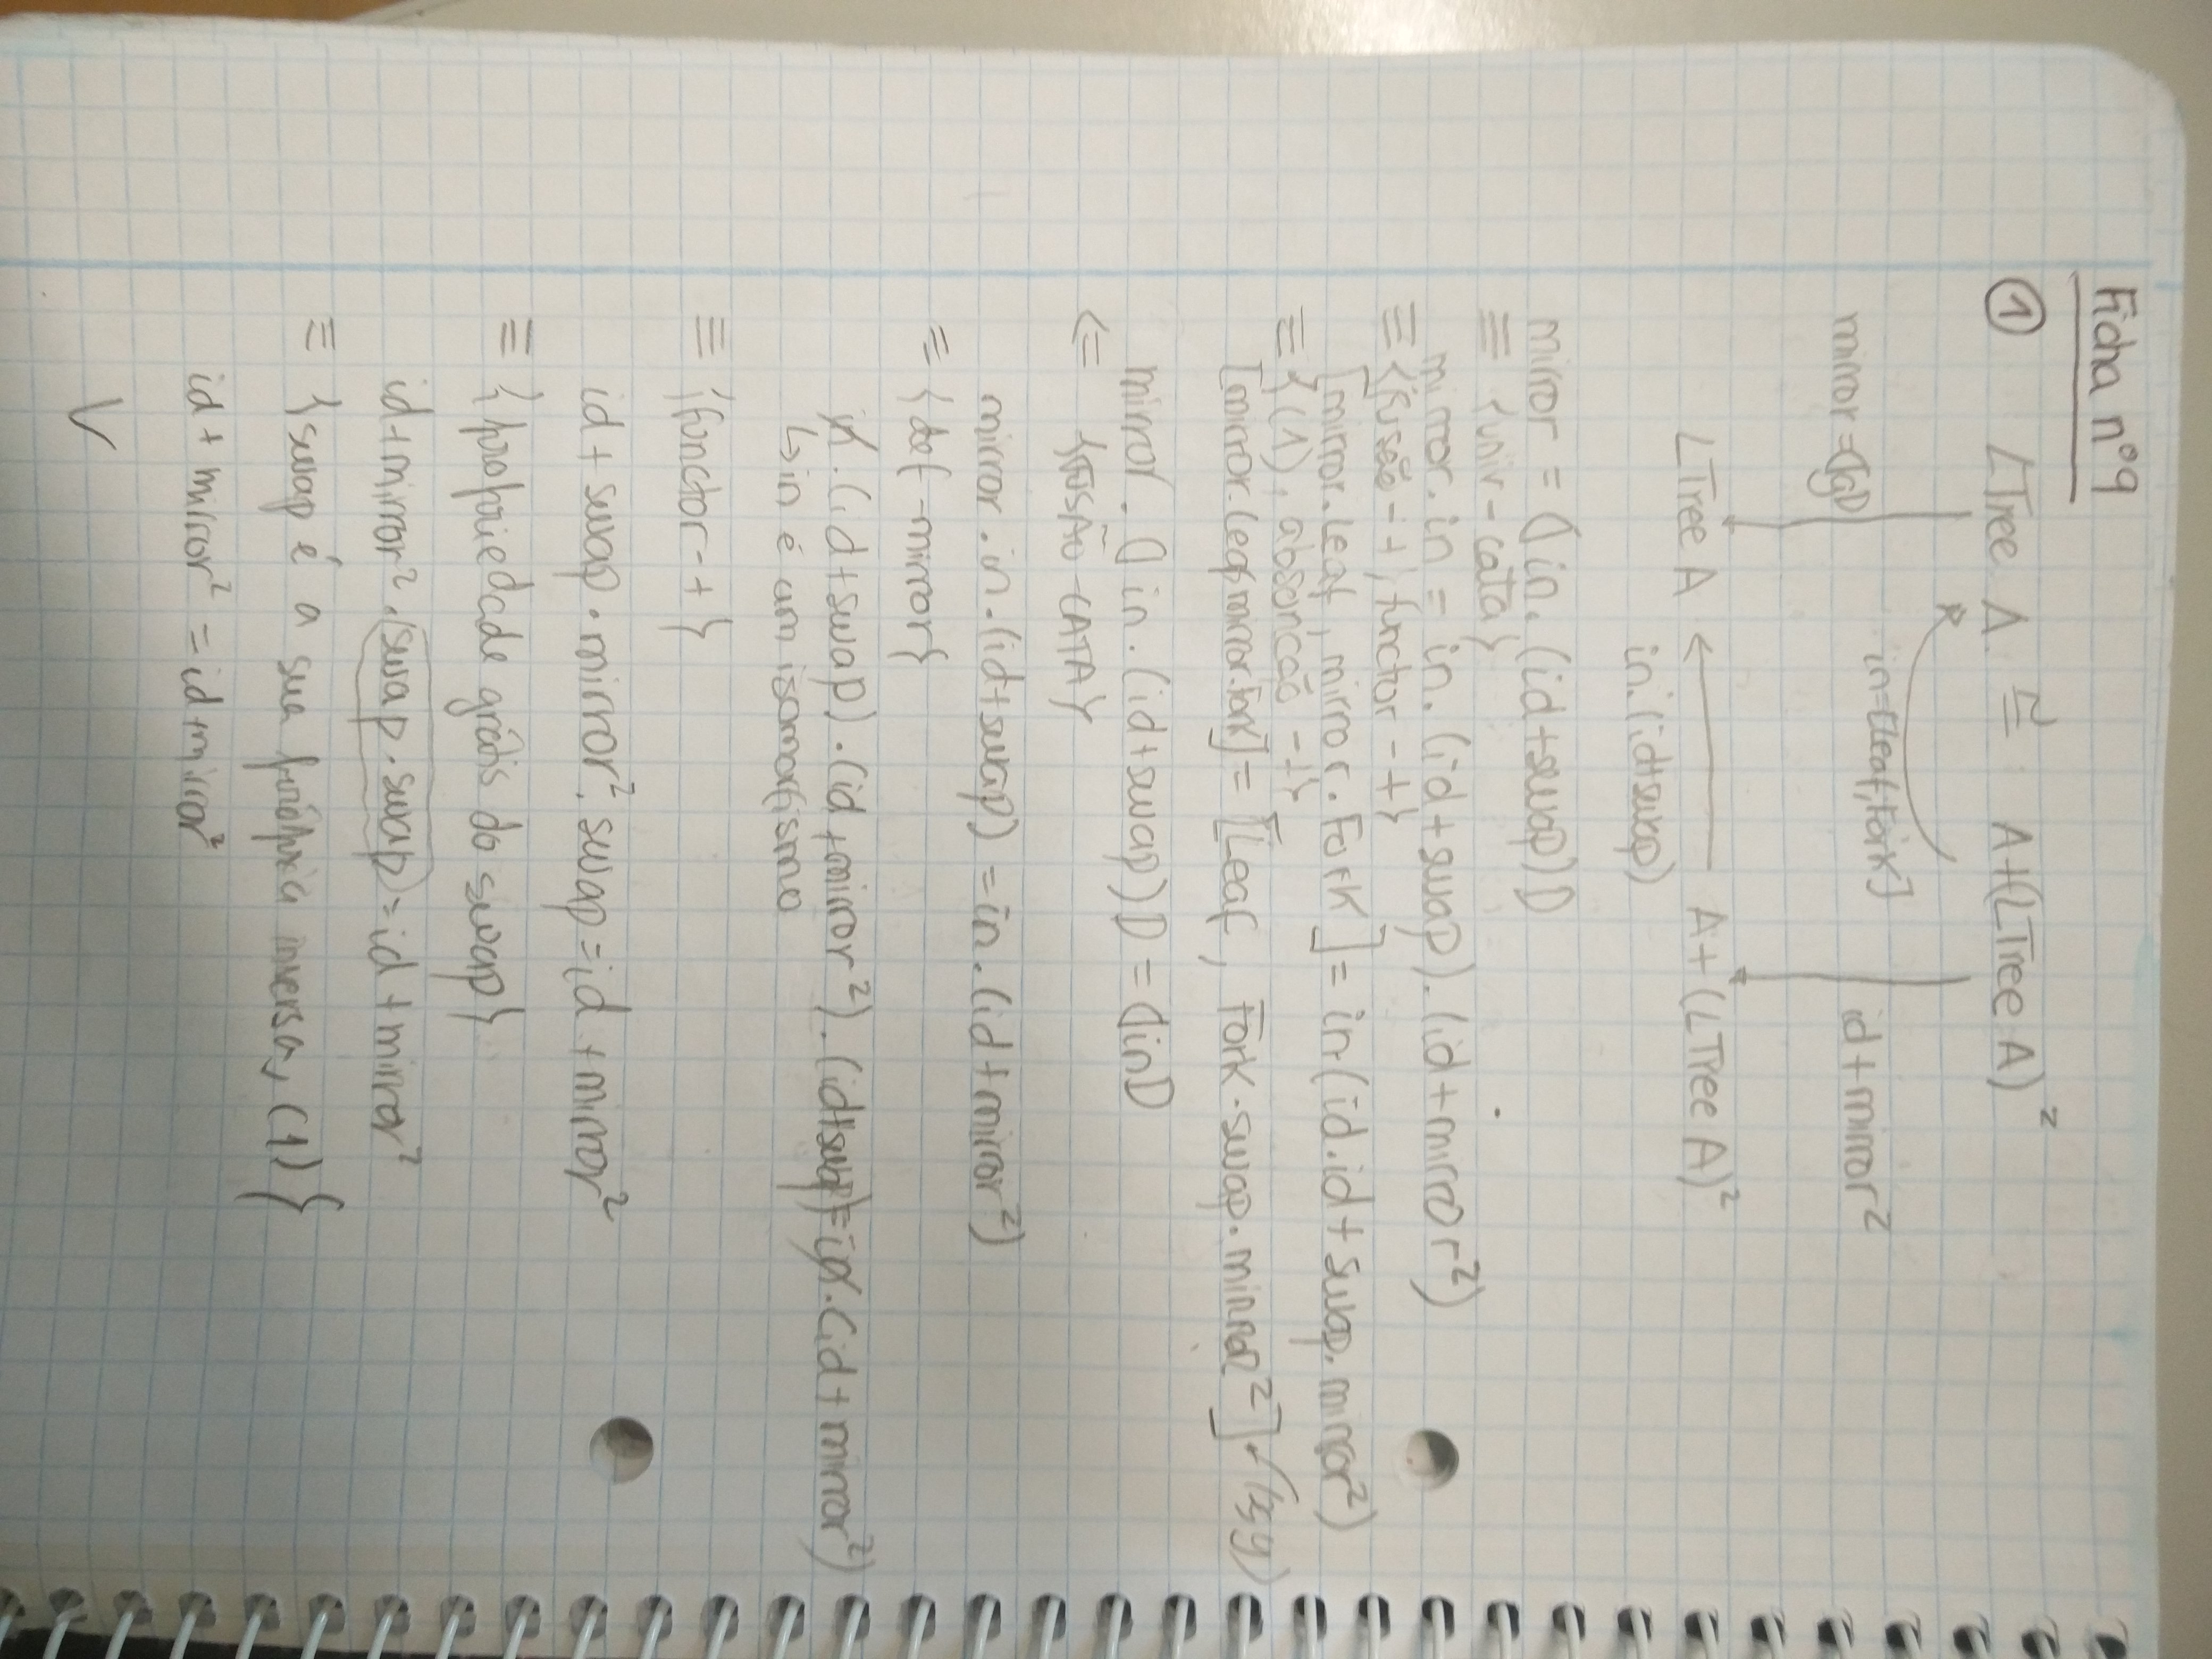 Ficha nº9
① LTree A ≅ A+(LTree A)²
in=[Leaf,Fork]
mirror=⦇g⦈ id+mirror²
LTree A ← A+(LTree A)²
in.(id+swap)
mirror = ⦇in.(id+swap)⦈
≡ {univ-cata}
mirror.in = in.(id+swap).(id+mirror²)
≡ {fusão-+, functor-+}
[mirror.Leaf, mirror.Fork] = in.(id.id+swap.mirror²)
≡ {(1), absorção-+}
[mirror.Leaf, mirror.Fork] = [Leaf, Fork.swap.mirror²] (x,y)
mirror.⦇in.(id+swap)⦈ = ⦇in⦈
⇐ {FUSÃO-CATA}
mirror.in.(id+swap) = in.(id+mirror²)
≡ {def-mirror}
in.(id+swap).(id+mirror²).(id+swap)=in.(id+mirror²)
↳in é um isomorfismo
≡ {functor-+}
id+swap.mirror².swap=id+mirror²
≡ {propriedade grátis do swap}
id+mirror².(swap.swap)=id+mirror²
≡ {swap é a sua própria inversa, (1)}
id+mirror² = id+mirror²
V